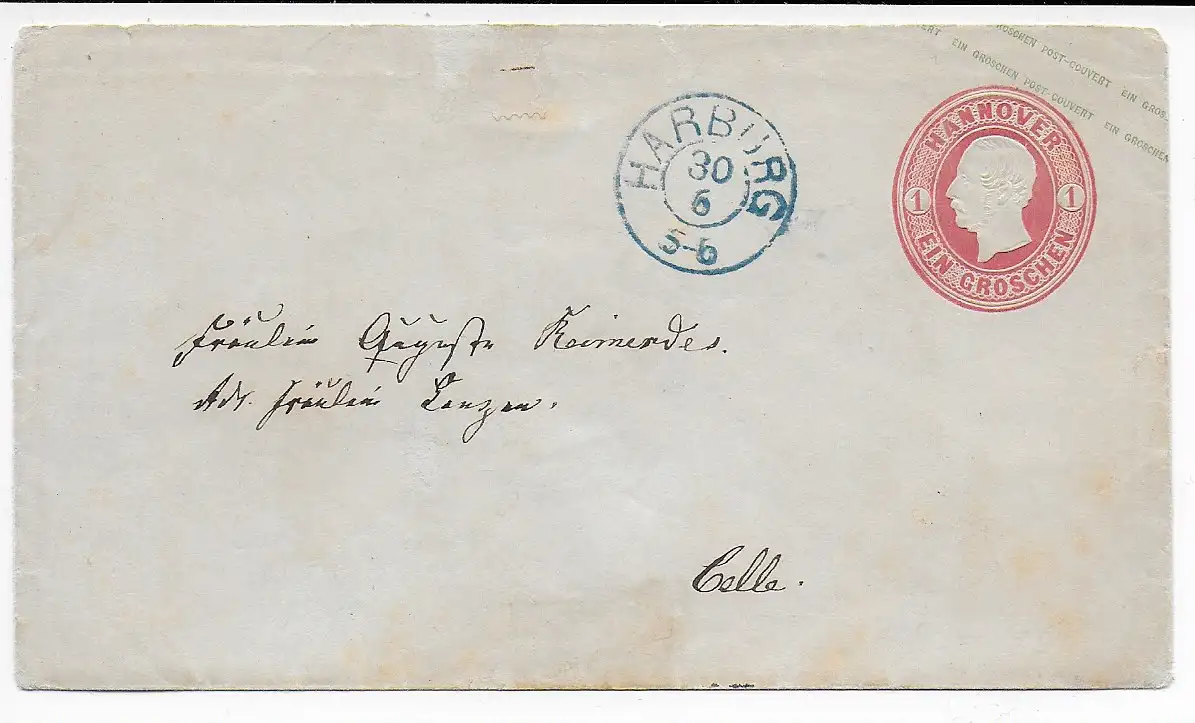 ROSCHEN POST-COUVERT EIN GROS
ERT EIN GROSCHEN POST-COUVERT EIN GROSCHEN
HANNOVER
1 1
EIN GROSCHEN
HARBURG
30
6
5-6
Fräulein Auguste Reimerdes.
Adr. Fräulein Lenzen.
Celle.